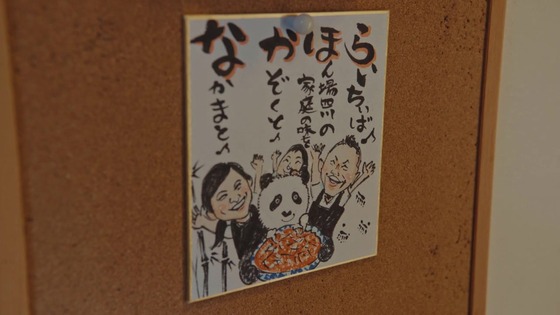 らいちぃば♪
ほん場四川の
家庭の味を
かぞくと♪
なかまと♪